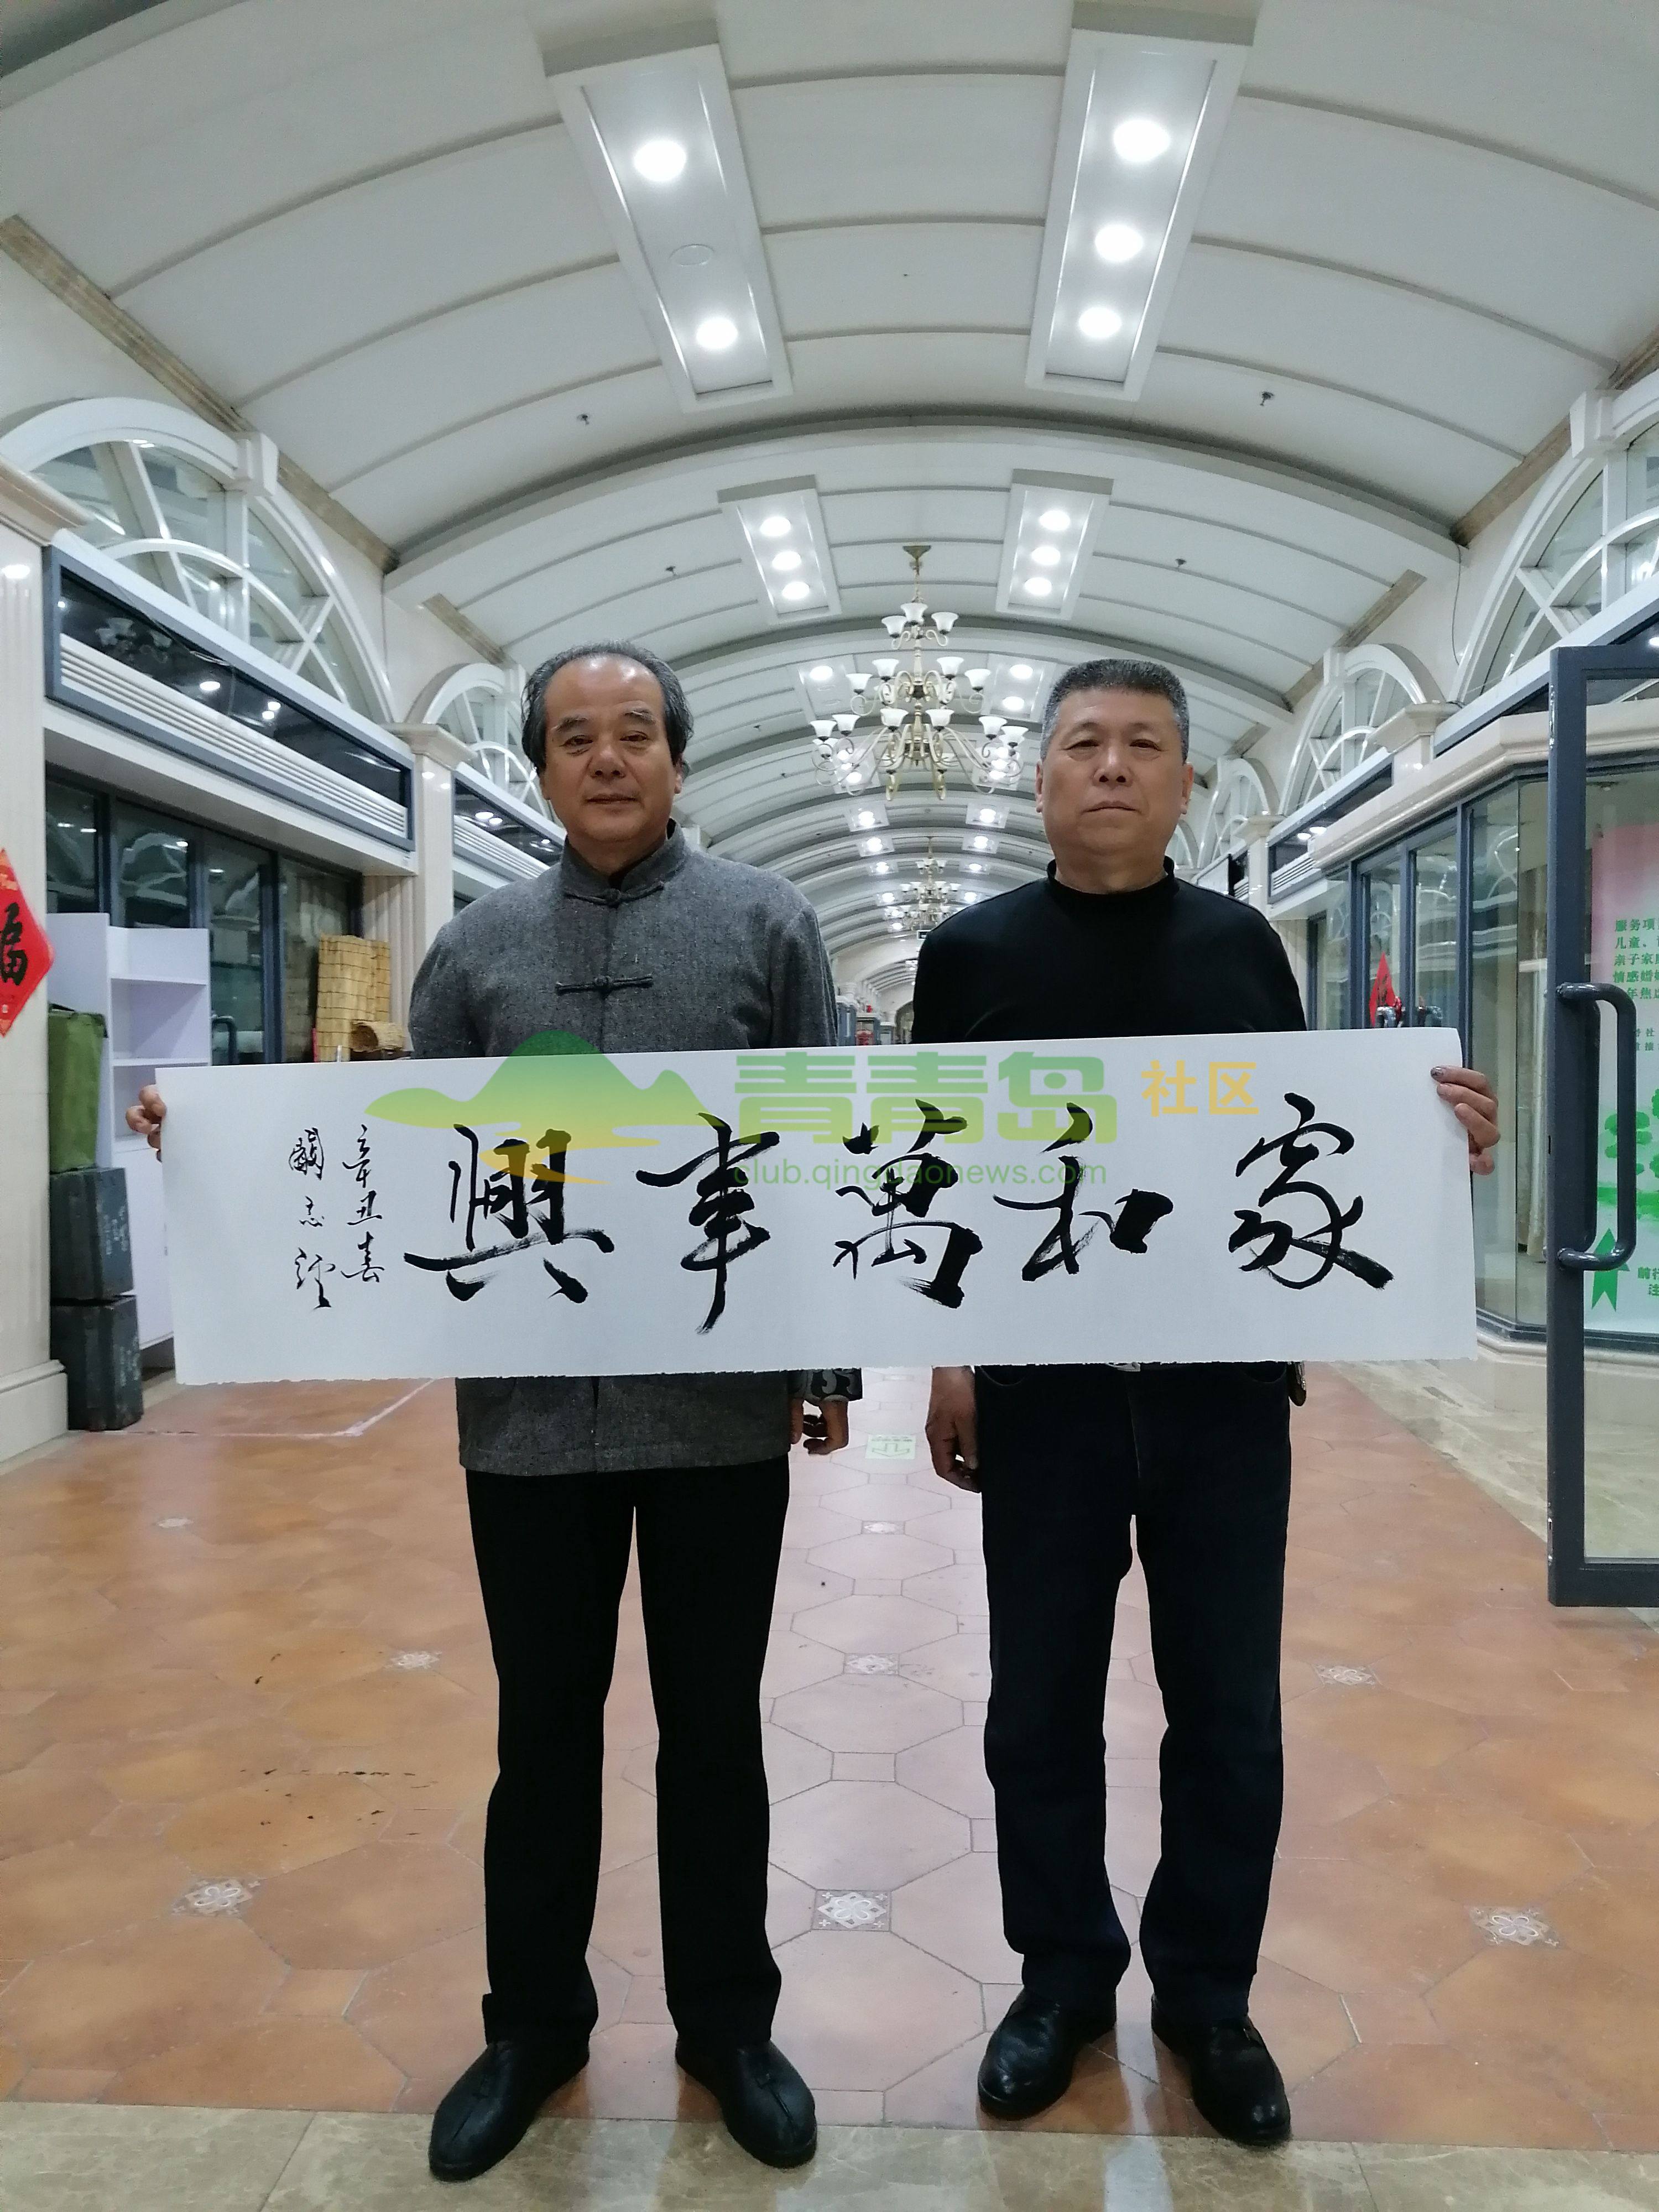 家和萬事興
辛丑春
青青岛 社区
club.qingdaonews.com
福
服务项
儿童、
亲子家
情感婚
年焦